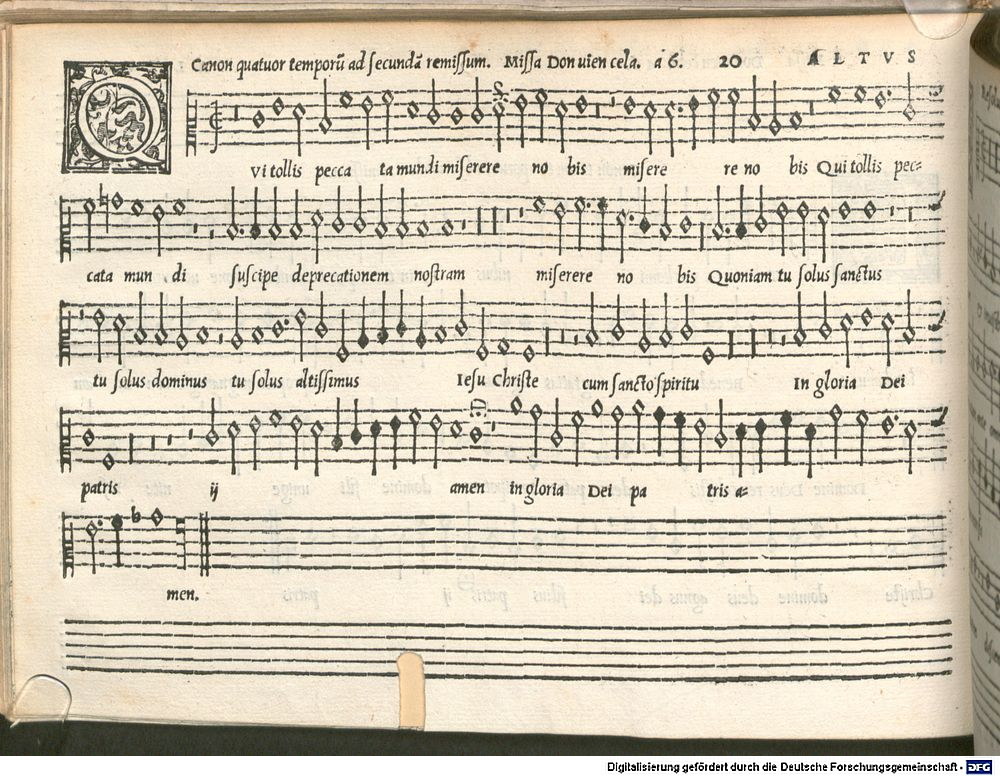 Canon quatuor temporū ad secundā remissum. Missa Don vien cela. a 6. 20 ALTVS
QVi tollis pecca ta mundi miserere no bis misere re no bis Qui tollis pec=
cata mun di suscipe deprecationem nostram miserere no bis Quoniam tu solus sanctus
tu solus dominus tu solus altissimus Iesu Christe cum sancto spiritu In gloria Dei
patris ij amen in gloria Dei pa tris a=
men.
Digitalisierung gefördert durch die Deutsche Forschungsgemeinschaft - DFG